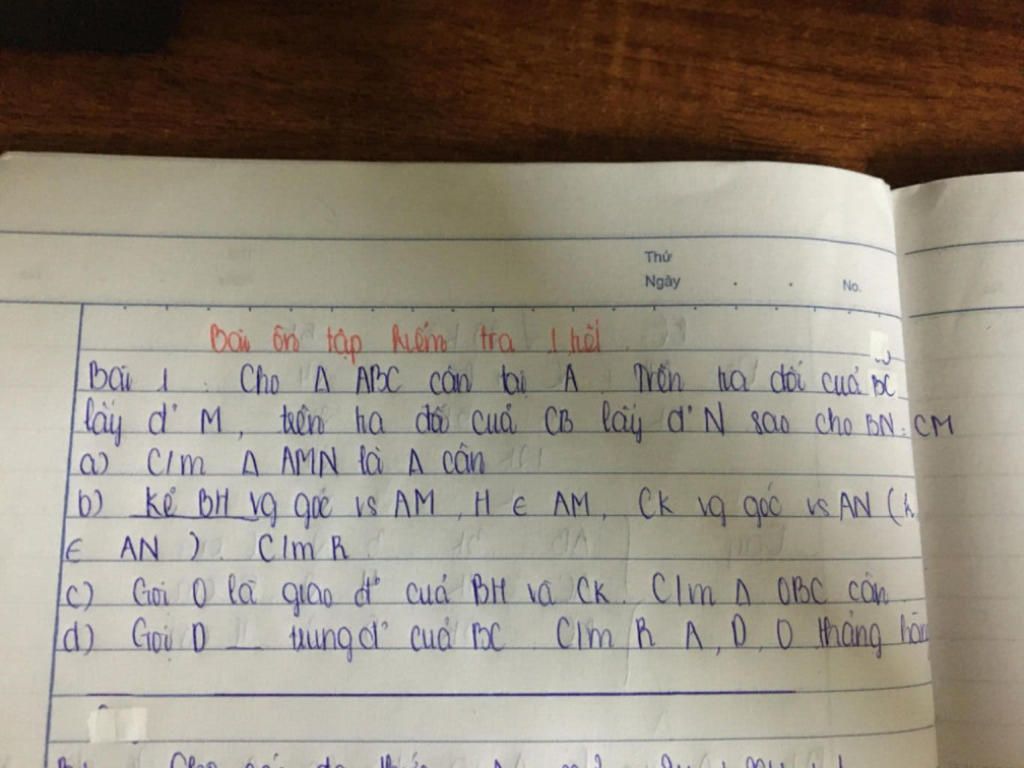 Thứ
Ngày . . No.
Bài ôn tập kiểm tra 1 tiết
Bài 1 : Cho Δ ABC cân tại A. Trên tia đối của BC
lấy đ' M, trên tia đối của CB lấy đ' N sao cho BN = CM
a) C/m Δ AMN là Δ cân
b) Kẻ BH vg góc vs AM, H ∈ AM, CK vg góc vs AN (K
∈ AN). C/m R
c) Gọi O là giao đ' của BH và CK. C/m Δ OBC cân
d) Gọi D __ trung đ' của BC. C/m R A, D, O thẳng hàng